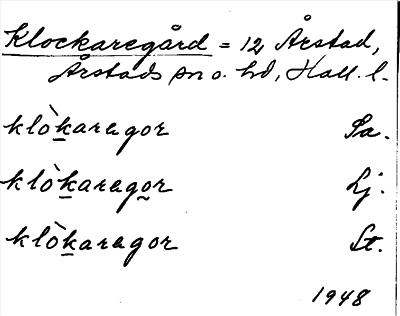 Klockaregård = 12 Årstad,
Årstads sn o. hd, Hall. l.
klòk̲aregor Sa.
klòk̲arego̰r Lj.
klòk̲aregor St.
1948